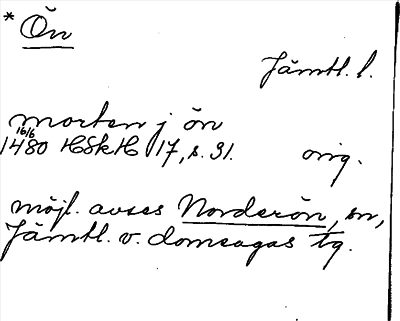 * Ön
Jämtl. l.
morten j ön
16/6
1480 HSkH 17, s. 31. orig.
möjl. avses Norderön, sn,
Jämtl. v. domsagas tg.